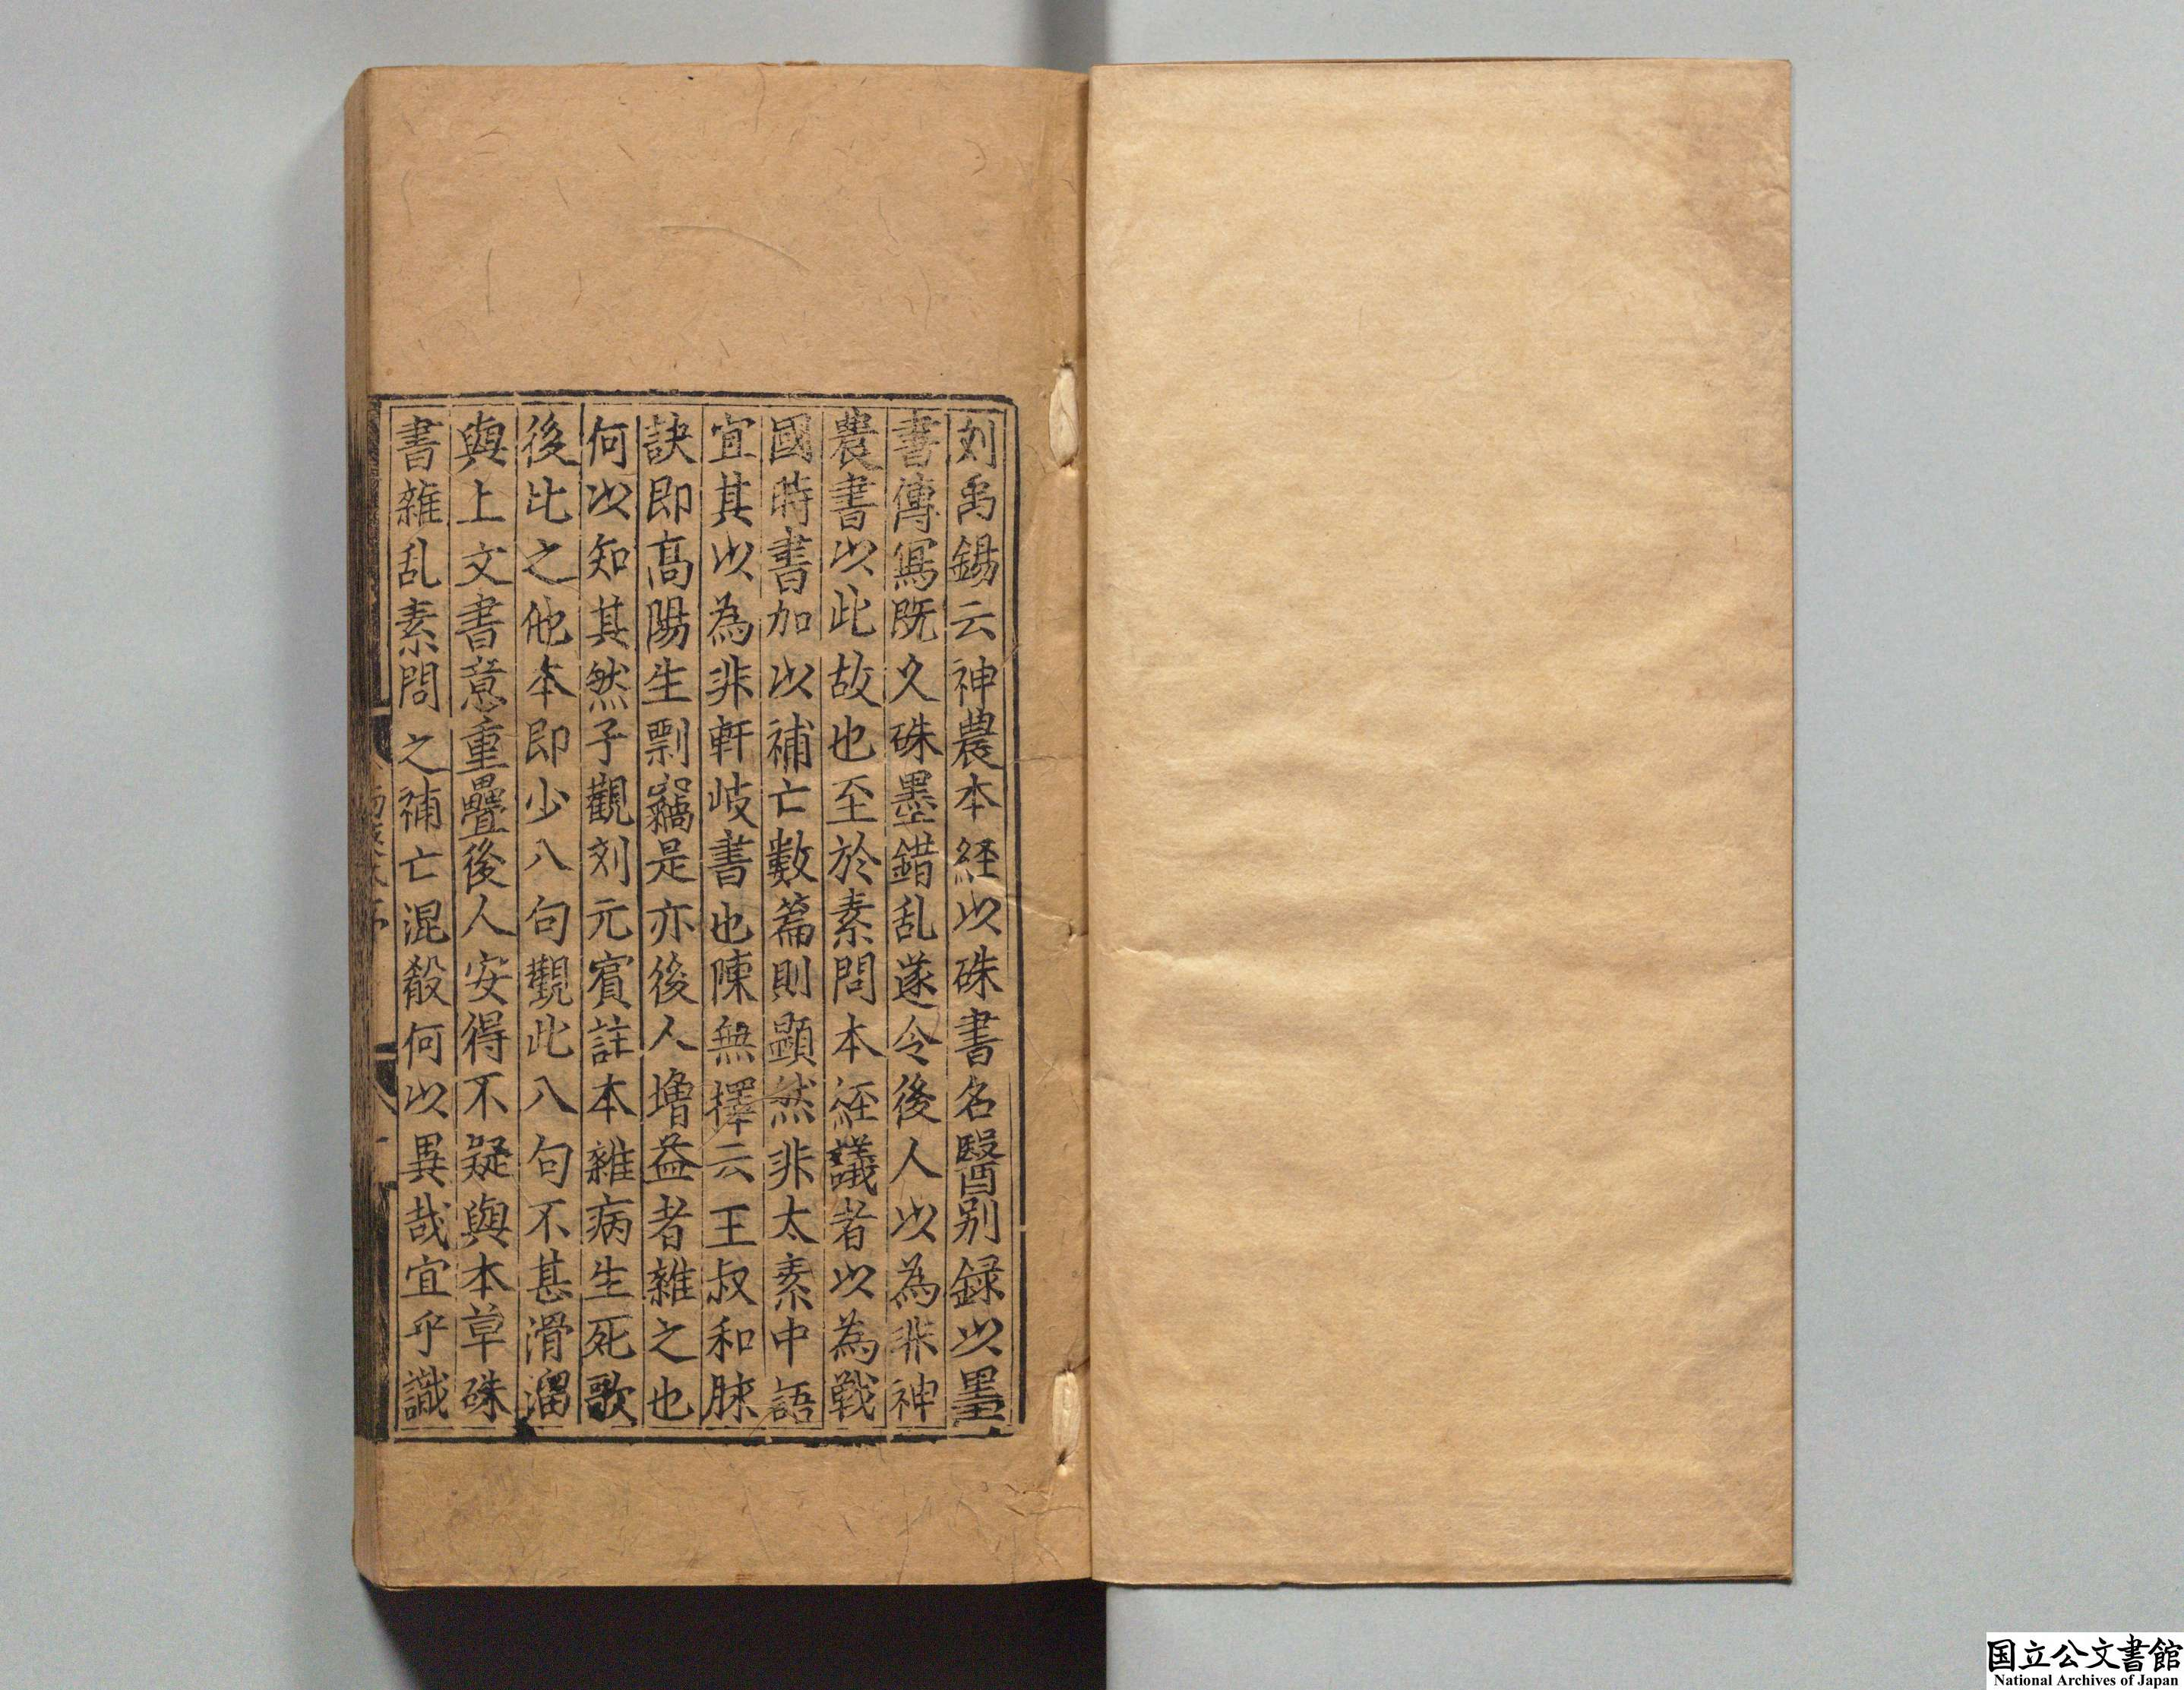 刘禹錫云神農本経以硃書名醫别録以墨
書傳寫既久硃墨錯乱遂令後人以為非神
農書以此故也至於素問本経議者以為戰
國時書加以補亡數篇則顕然非太素中語
宜其以為非軒岐書也陳無擇云王叔和脉
訣即高陽生剽竊是亦後人增益者雜之也
何以知其然子觀刘元賓註本雜病生死歌
後比之他本即少八句觀此八句不甚滑溜
與上文書意重疊後人安得不疑與本草硃
書雜乱素問之補亡混殽何以異哉宜乎識
国立公文書館
National Archives of Japan